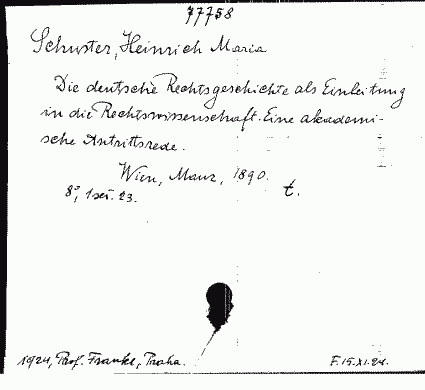 77758
Schuster, Heinrich Maria
Die deutsche Rechtsgeschichte als Einleitung
in die Rechtswissenschaft. Eine akademi-
sche Antrittsrede.
Wien, Manz, 1890.
8°, 1 seš. 23. t.
1924, Prof. Frankl, Praha. F. 15.XI.24.